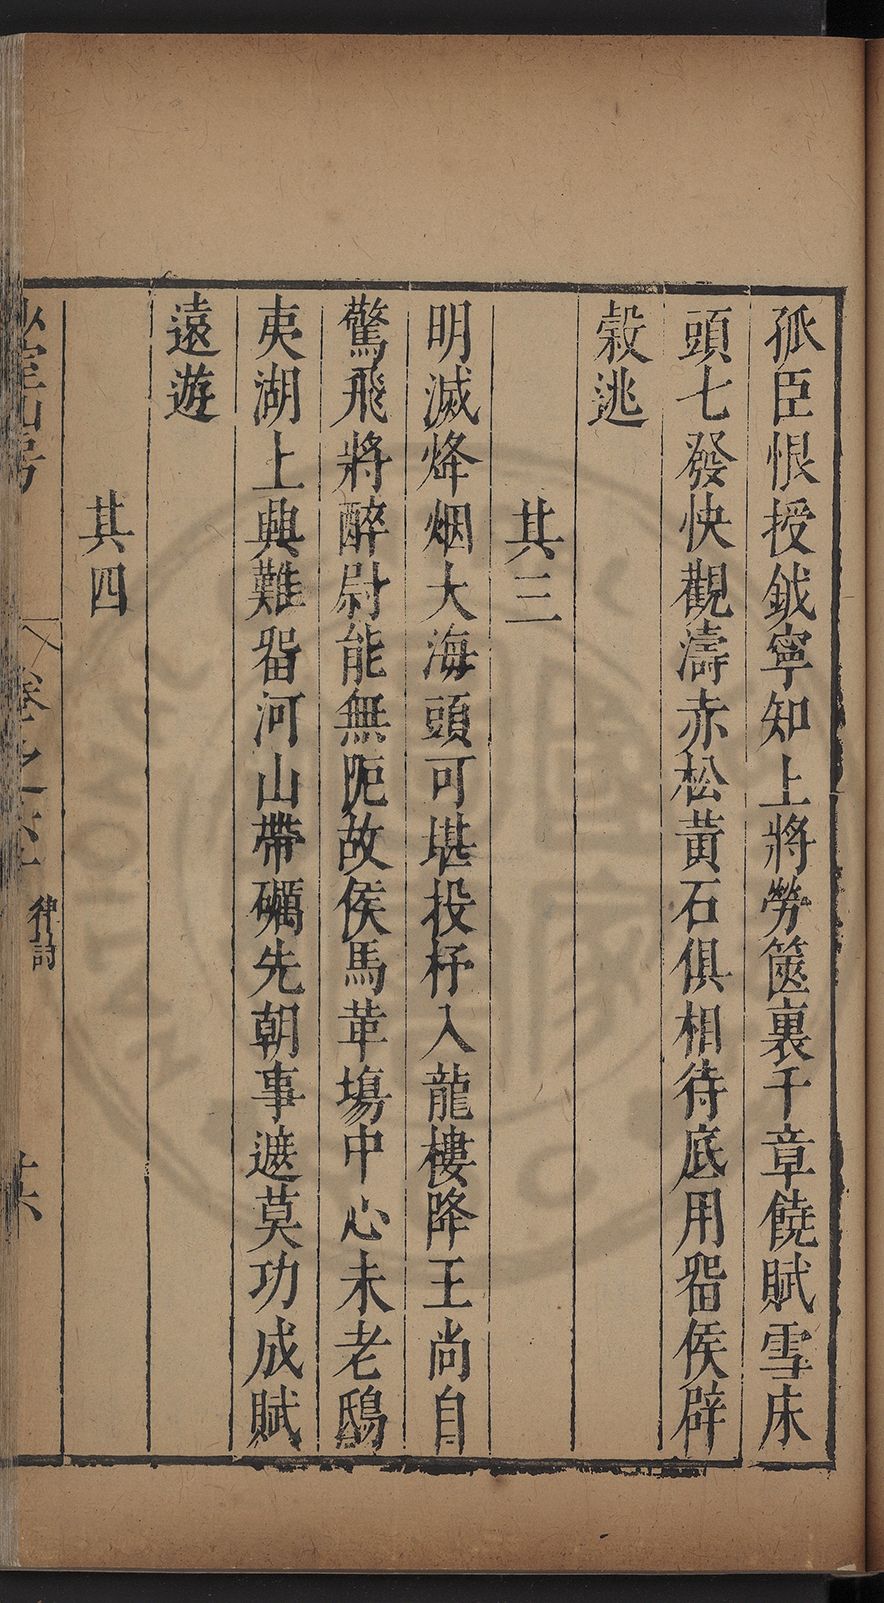 孤臣恨授鉞寧知上將勞篋裏千章饒賦雪床
頭七發快觀濤赤松黃石俱相待底用畱侯辟
穀逃
其三
明滅烽烟大海頭可堪投杼入龍樓降王尚自
驚飛將醉尉能無阨故侯馬革塲中心未老鴟
夷湖上興難畱河山帶礪先朝事遮莫功成賦
遠遊
其四
律詩